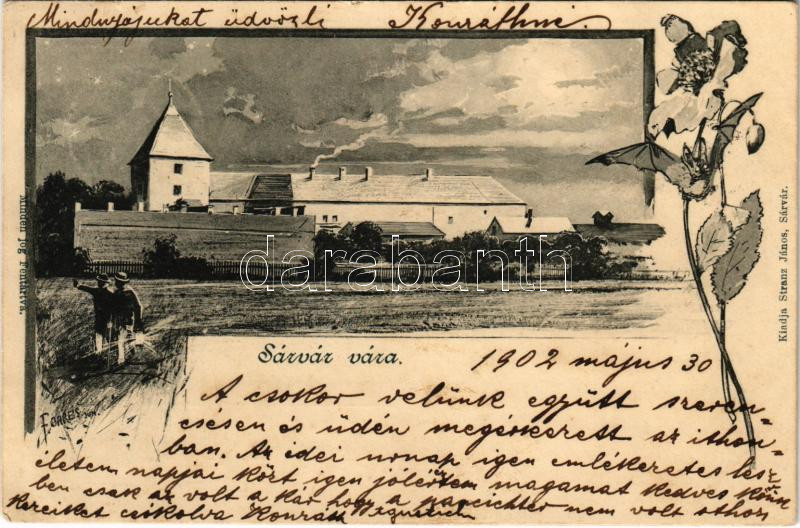 Mindnyájukat üdvözli Konráthné.
Minden jog fentartva.
Kiadja Stranz János, Sárvár.
darabanth
Sárvár vára.
1902 május 30
A csokor velünk együtt szeren-
csésen és üdén megérkezett az ithon-
ban. Az idei unap igen emlékezetes lesz
életem napjai közt igen jól magamat kedves
ben csak az volt a kár hogy a nem volt othon
csókolva Konráth